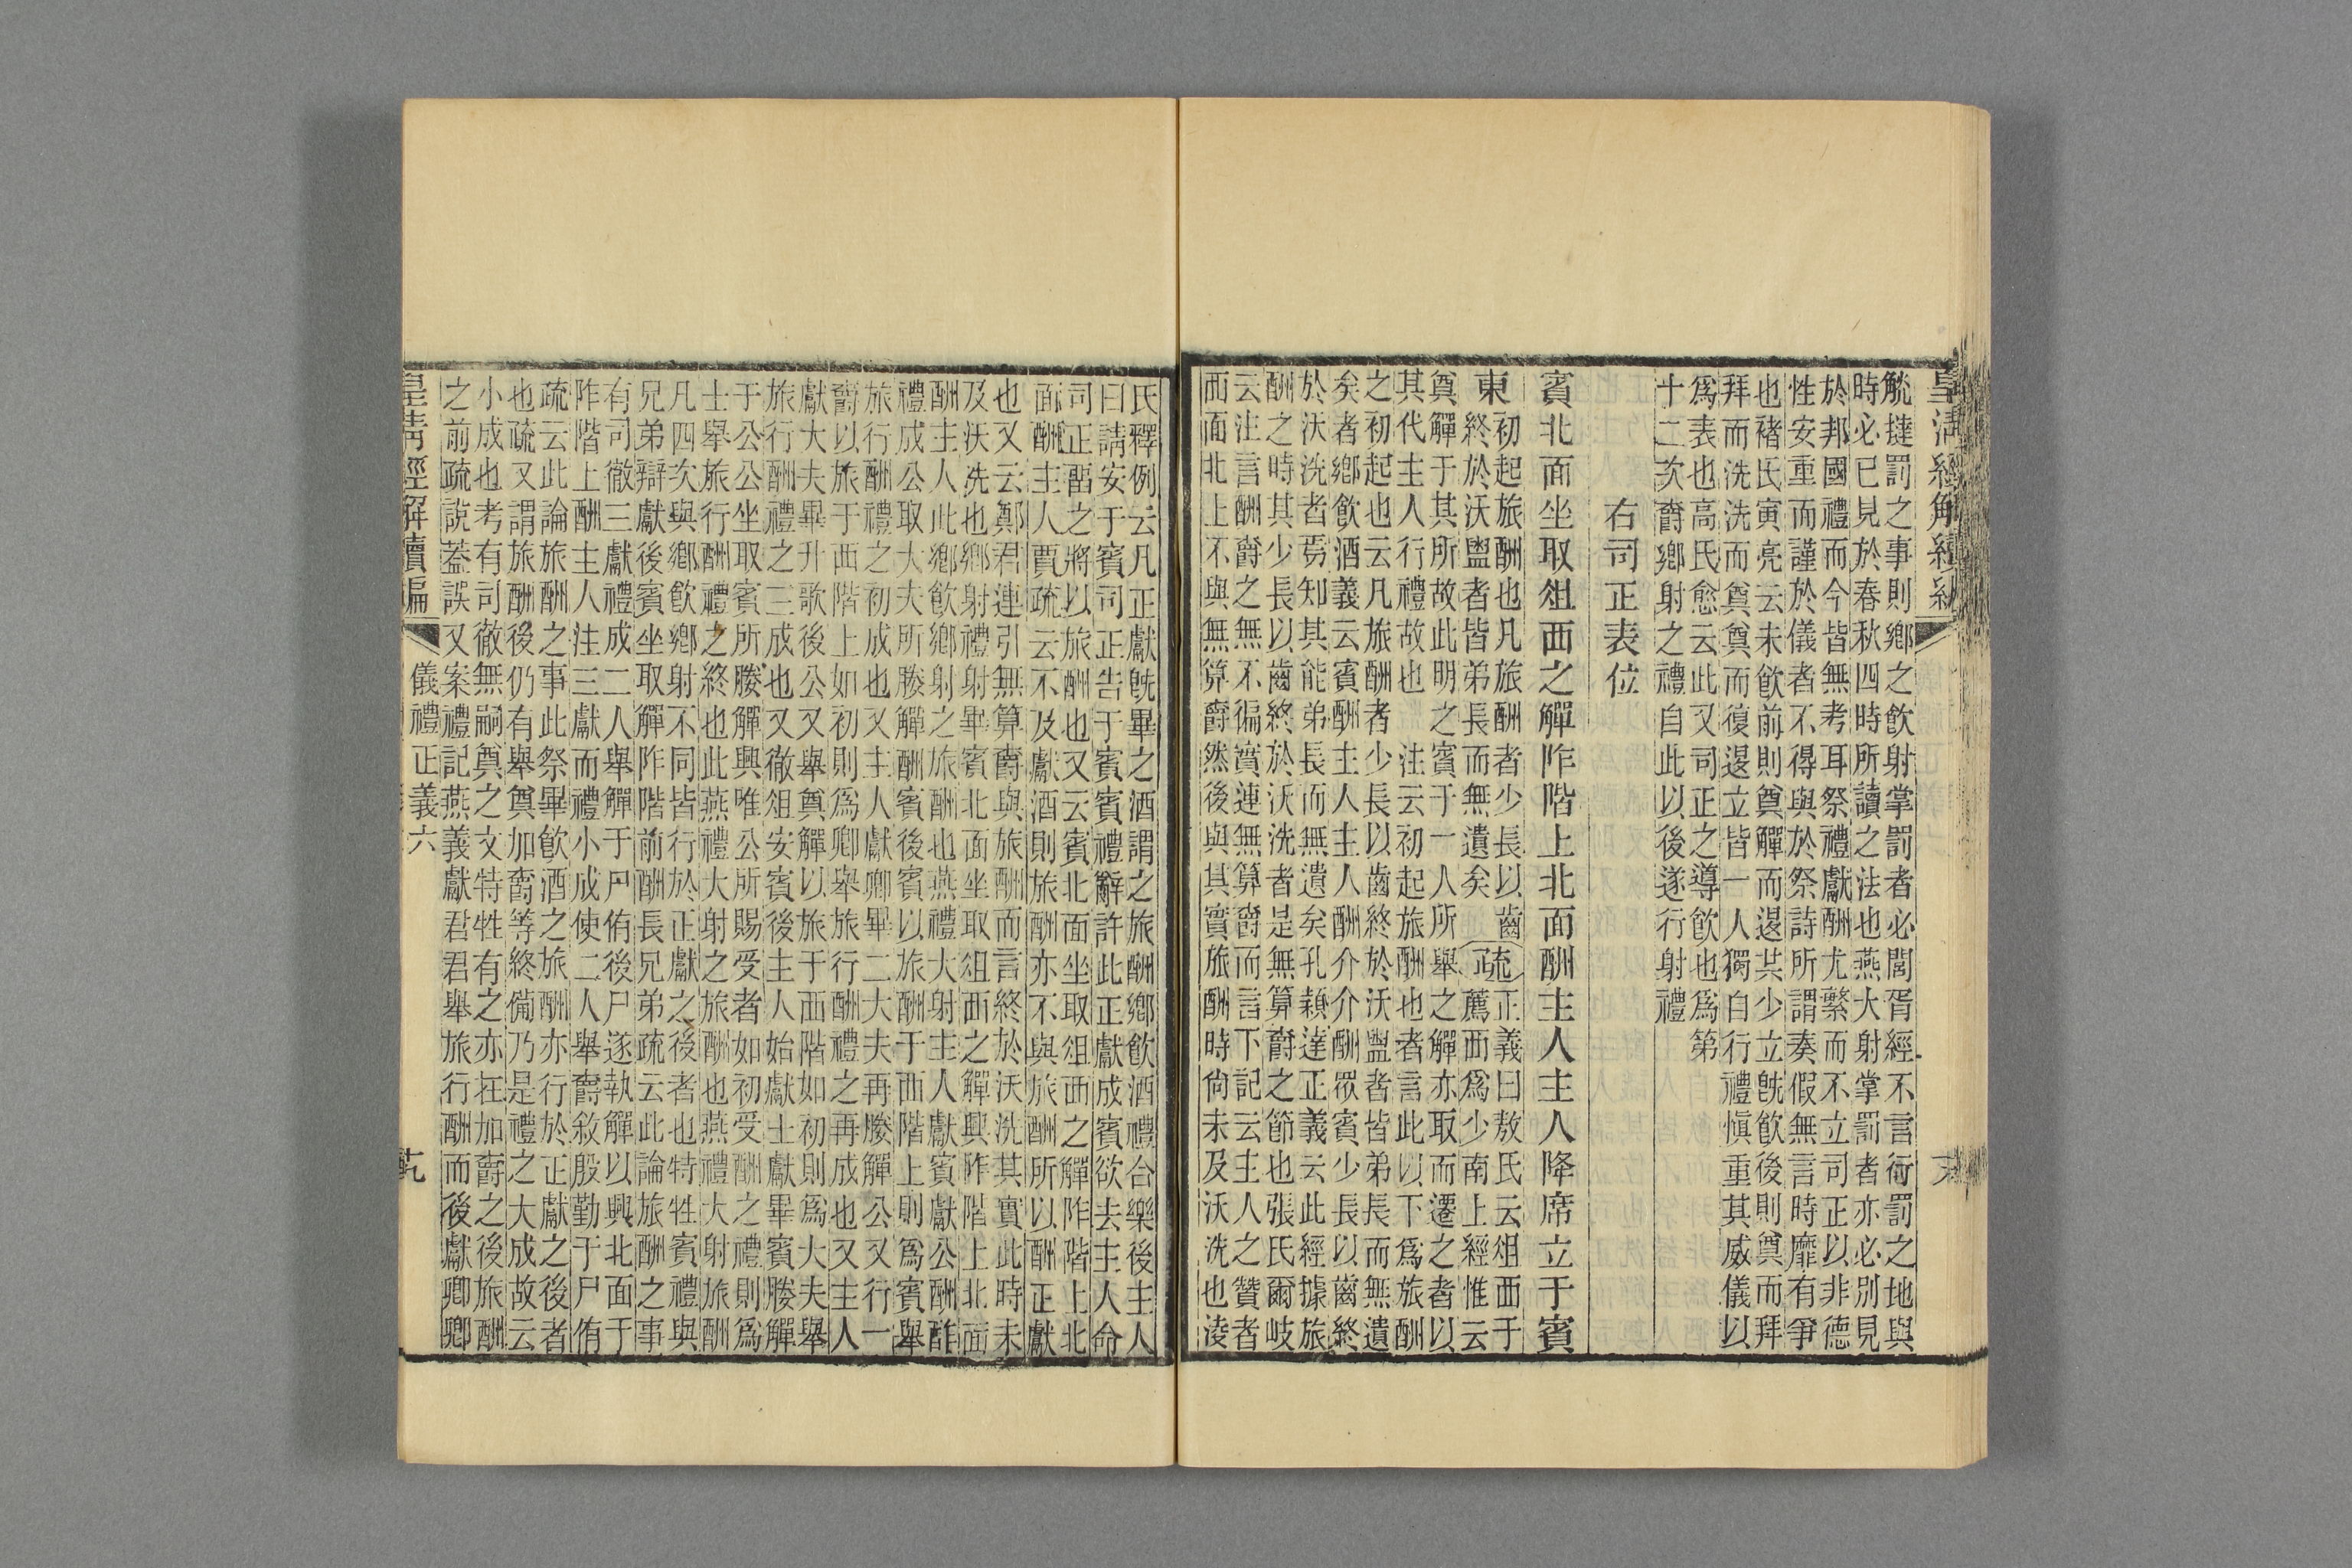 皇清經解續編
觥撻罰之事則鄉之飮射掌罰者必閭胥經不言衙罰之地與
時必已見於春秋四時所讀之法也燕大射掌罰者亦必別見
於邦國禮而今皆無考耳祭禮獻酬尤繁而不立司正以非德
性安重而謹於儀者不得與於祭詩所謂奏假無言時靡有爭
也褚氏寅亮云未飮前則奠觶而退共少立旣飮後則奠而拜
拜而洗洗而奠奠而復退立皆一人獨自行禮愼重其威儀以
爲表也高氏愈云此又司正之導飮也爲第
十二次爵鄉射之禮自此以後遂行射禮
右司正表位
賓北面坐取俎西之觶阼階上北面酬主人主人降席立于賓
東
初起旅酬也凡旅酬者少長以齒
終於沃盥者皆弟長而無遺矣
疏
正義曰敖氏云俎西于
薦西爲少南上經惟云
奠觶于其所故此明之賓于一人所舉之觶亦取而遷之者以
其代主人行禮故也 注云初起旅酬也者言此以下爲旅酬
之初起也云凡旅酬者少長以齒終於沃盥者皆弟長而無遺
矣者鄉飮酒義云賓酬主人主人酬介介酬眾賓少長以齒終
於沃洗者焉知其能弟長而無遺矣孔穎達正義云此經據旅
酬之時其少長以齒終於沃洗者是無算爵之節也張氏爾岐
云注言酬爵之無不徧實連無算爵而言下記云主人之贊者
西面北上不與無算爵然後與其實旅酬時尙未及沃洗也淩
氏釋例云凡正獻旣畢之酒謂之旅酬鄉飮酒禮合樂後主人
曰請安于賓司正告于賓賓禮辭許此正獻成賓欲去主人命
司正畱之將以旅酬也又云賓北面坐取俎西之觶阼階上北
面酬主人賈疏云不及獻酒則旅酬亦不與旅酬所以酬正獻
也又云鄭君連引無算爵與旅酬而言終於沃洗其實此時未
及沃洗也鄉射禮射畢賓北面坐取俎西之觶興阼階上北面
酬主人此鄉飮鄉射之旅酬也燕禮大射主人獻賓獻公酬酢
禮成公取大夫所媵觶酬賓後賓以旅酬于西階上則爲賓舉
旅行酬禮之初成也又主人獻卿畢二大夫再媵觶公又行一
爵以旅于西階上如初則爲卿舉旅行酬禮之再成也又主人
獻大夫畢升歌後公又舉奠觶以旅于西階如初則爲大夫舉
旅行酬禮之三成也又徹俎安賓後主人始獻士獻畢賓媵觶
于公公坐取賓所媵觶興唯公所賜受者如初受酬之禮則爲
士舉旅行酬禮之終也此燕禮大射之旅酬也燕禮大射旅酬
凡四次與鄉飮鄉射不同皆行於正獻之後者也特牲賓禮與
兄弟辯獻後賓坐取觶阼階前酬長兄弟疏云此論旅酬之事
有司徹三獻禮成二人舉觶于尸侑後尸遂執觶以興北面于
阼階上酬主人注三獻而禮小成使二人舉爵敘殷勤于尸侑
疏云此論旅酬之事此祭畢飮酒之旅酬亦行於正獻之後者
也疏又謂旅酬後仍有舉奠加爵等終備乃是禮之大成故云
小成也考有司徹無嗣奠之文特牲有之亦在加爵之後旅酬
之前疏說葢誤又案禮記燕義獻君君舉旅行酬而後獻卿卿
皇清經解續編
儀禮正義六